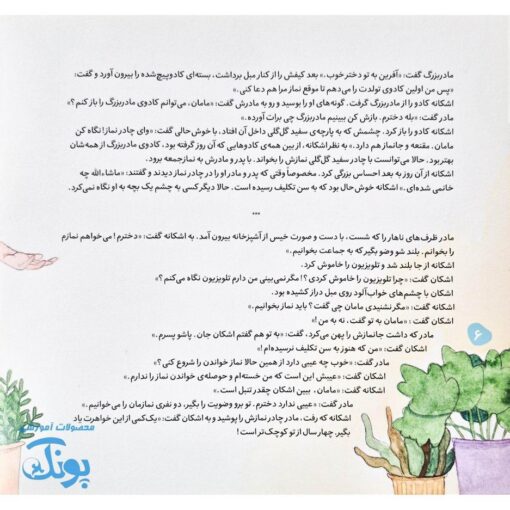 مادربزرگ گفت: «آفرین به تو دختر خوب.» بعد کیفش را از کنار مبل برداشت، بسته‌ای کادوپیچ‌شده را بیرون آورد و گفت:
«پس من اولین کادوی تولدت را می‌دهم تا موقع نماز مرا هم دعا کنی.»
اشکانه کادو را از مادربزرگ گرفت. گونه‌های او را بوسید و رو به مادرش گفت: «مامان، می‌توانم کادوی مادربزرگ را باز کنم؟»
مادر گفت: «بله دخترم. باز کن ببینیم مادربزرگ چی برات آورده.»
اشکانه کادو را باز کرد. چشمش که به پارچه‌ی سفید گل‌گلی داخل آن افتاد، با خوش‌حالی گفت: «وای چادر نماز! نگاه کن
مامان. مقنعه و جانماز هم دارد.» به نظر اشکانه، از بین همه‌ی کادوهایی که آن روز گرفته بود، کادوی مادربزرگ از همه‌شان
بهتر بود. حالا می‌توانست با چادر سفید گل‌گلی نمازش را بخواند. با پدر و مادرش به نماز جمعه برود.
اشکانه از آن روز به بعد احساس بزرگی کرد. مخصوصاً وقتی که پدر و مادر او را در چادر نماز دیدند و گفتند: «ماشاءالله چه
خانمی شده‌ای.» اشکانه خوش‌حال بود که به سن تکلیف رسیده است. حالا دیگر کسی به چشم یک بچه به او نگاه نمی‌کرد.
***
مادر ظرف‌های ناهار را که شست، با دست و صورت خیس از آشپزخانه بیرون آمد. به اشکانه گفت: «دخترم! می‌خواهم نمازم
را بخوانم. بلند شو وضو بگیر که به جماعت بخوانیم.»
اشکانه از جا بلند شد و تلویزیون را خاموش کرد.
اشکان گفت: «چرا تلویزیون را خاموش کردی؟! مگر نمی‌بینی من دارم تلویزیون نگاه می‌کنم؟»
اشکان با چشم‌های خواب‌آلود روی مبل دراز کشیده بود.
اشکانه گفت: «مگر نشنیدی مامان چی گفت؟ باید نماز بخوانیم.»
اشکان گفت: «مامان به تو گفت، نه به من!»
مادر که داشت جانمازش را پهن می‌کرد، گفت: «به تو هم گفتم اشکان جان. پاشو پسرم.»
اشکان گفت: «من که هنوز به سن تکلیف نرسیده‌ام!»
مادر گفت: «خوب چه عیبی دارد از همین حالا نماز خواندن را شروع کنی؟»
اشکان گفت: «عیبش این است که من خسته‌ام و حوصله‌ی خواندن نماز را ندارم.»
اشکانه گفت: «مامان، ببین اشکان چقدر تنبل است.»
مادر گفت: «عیبی ندارد دخترم. تو برو وضویت را بگیر، دو نفری نمازمان را می‌خوانیم.»
اشکانه که رفت، مادر چادر نمازش را پوشید و به اشکان گفت: «یک‌کمی از این خواهرت یاد
بگیر. چهار سال از تو کوچک‌تر است!
۶
محصولات آموزشی
پونک